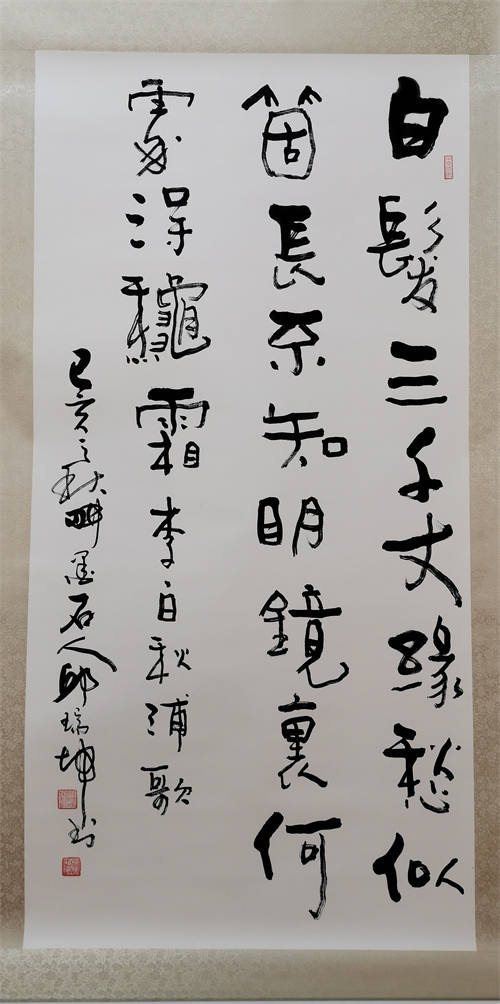 白髮三千丈緣愁似
箇長不知眀鏡裏何
處得龝霜李白秋浦歌
己亥之秋墨石人邱瑞坤书